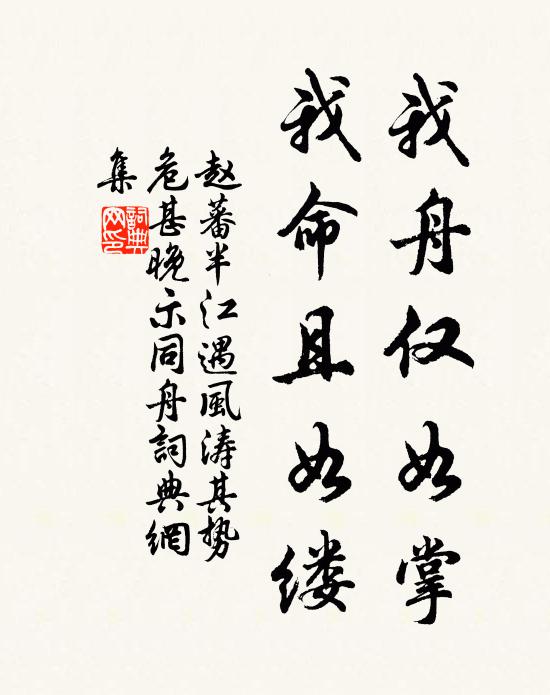 我舟仅如掌
我命且如缕
赵蕃半江遇風涛其势
危甚晚示同舟詞典網
集
詞典网印